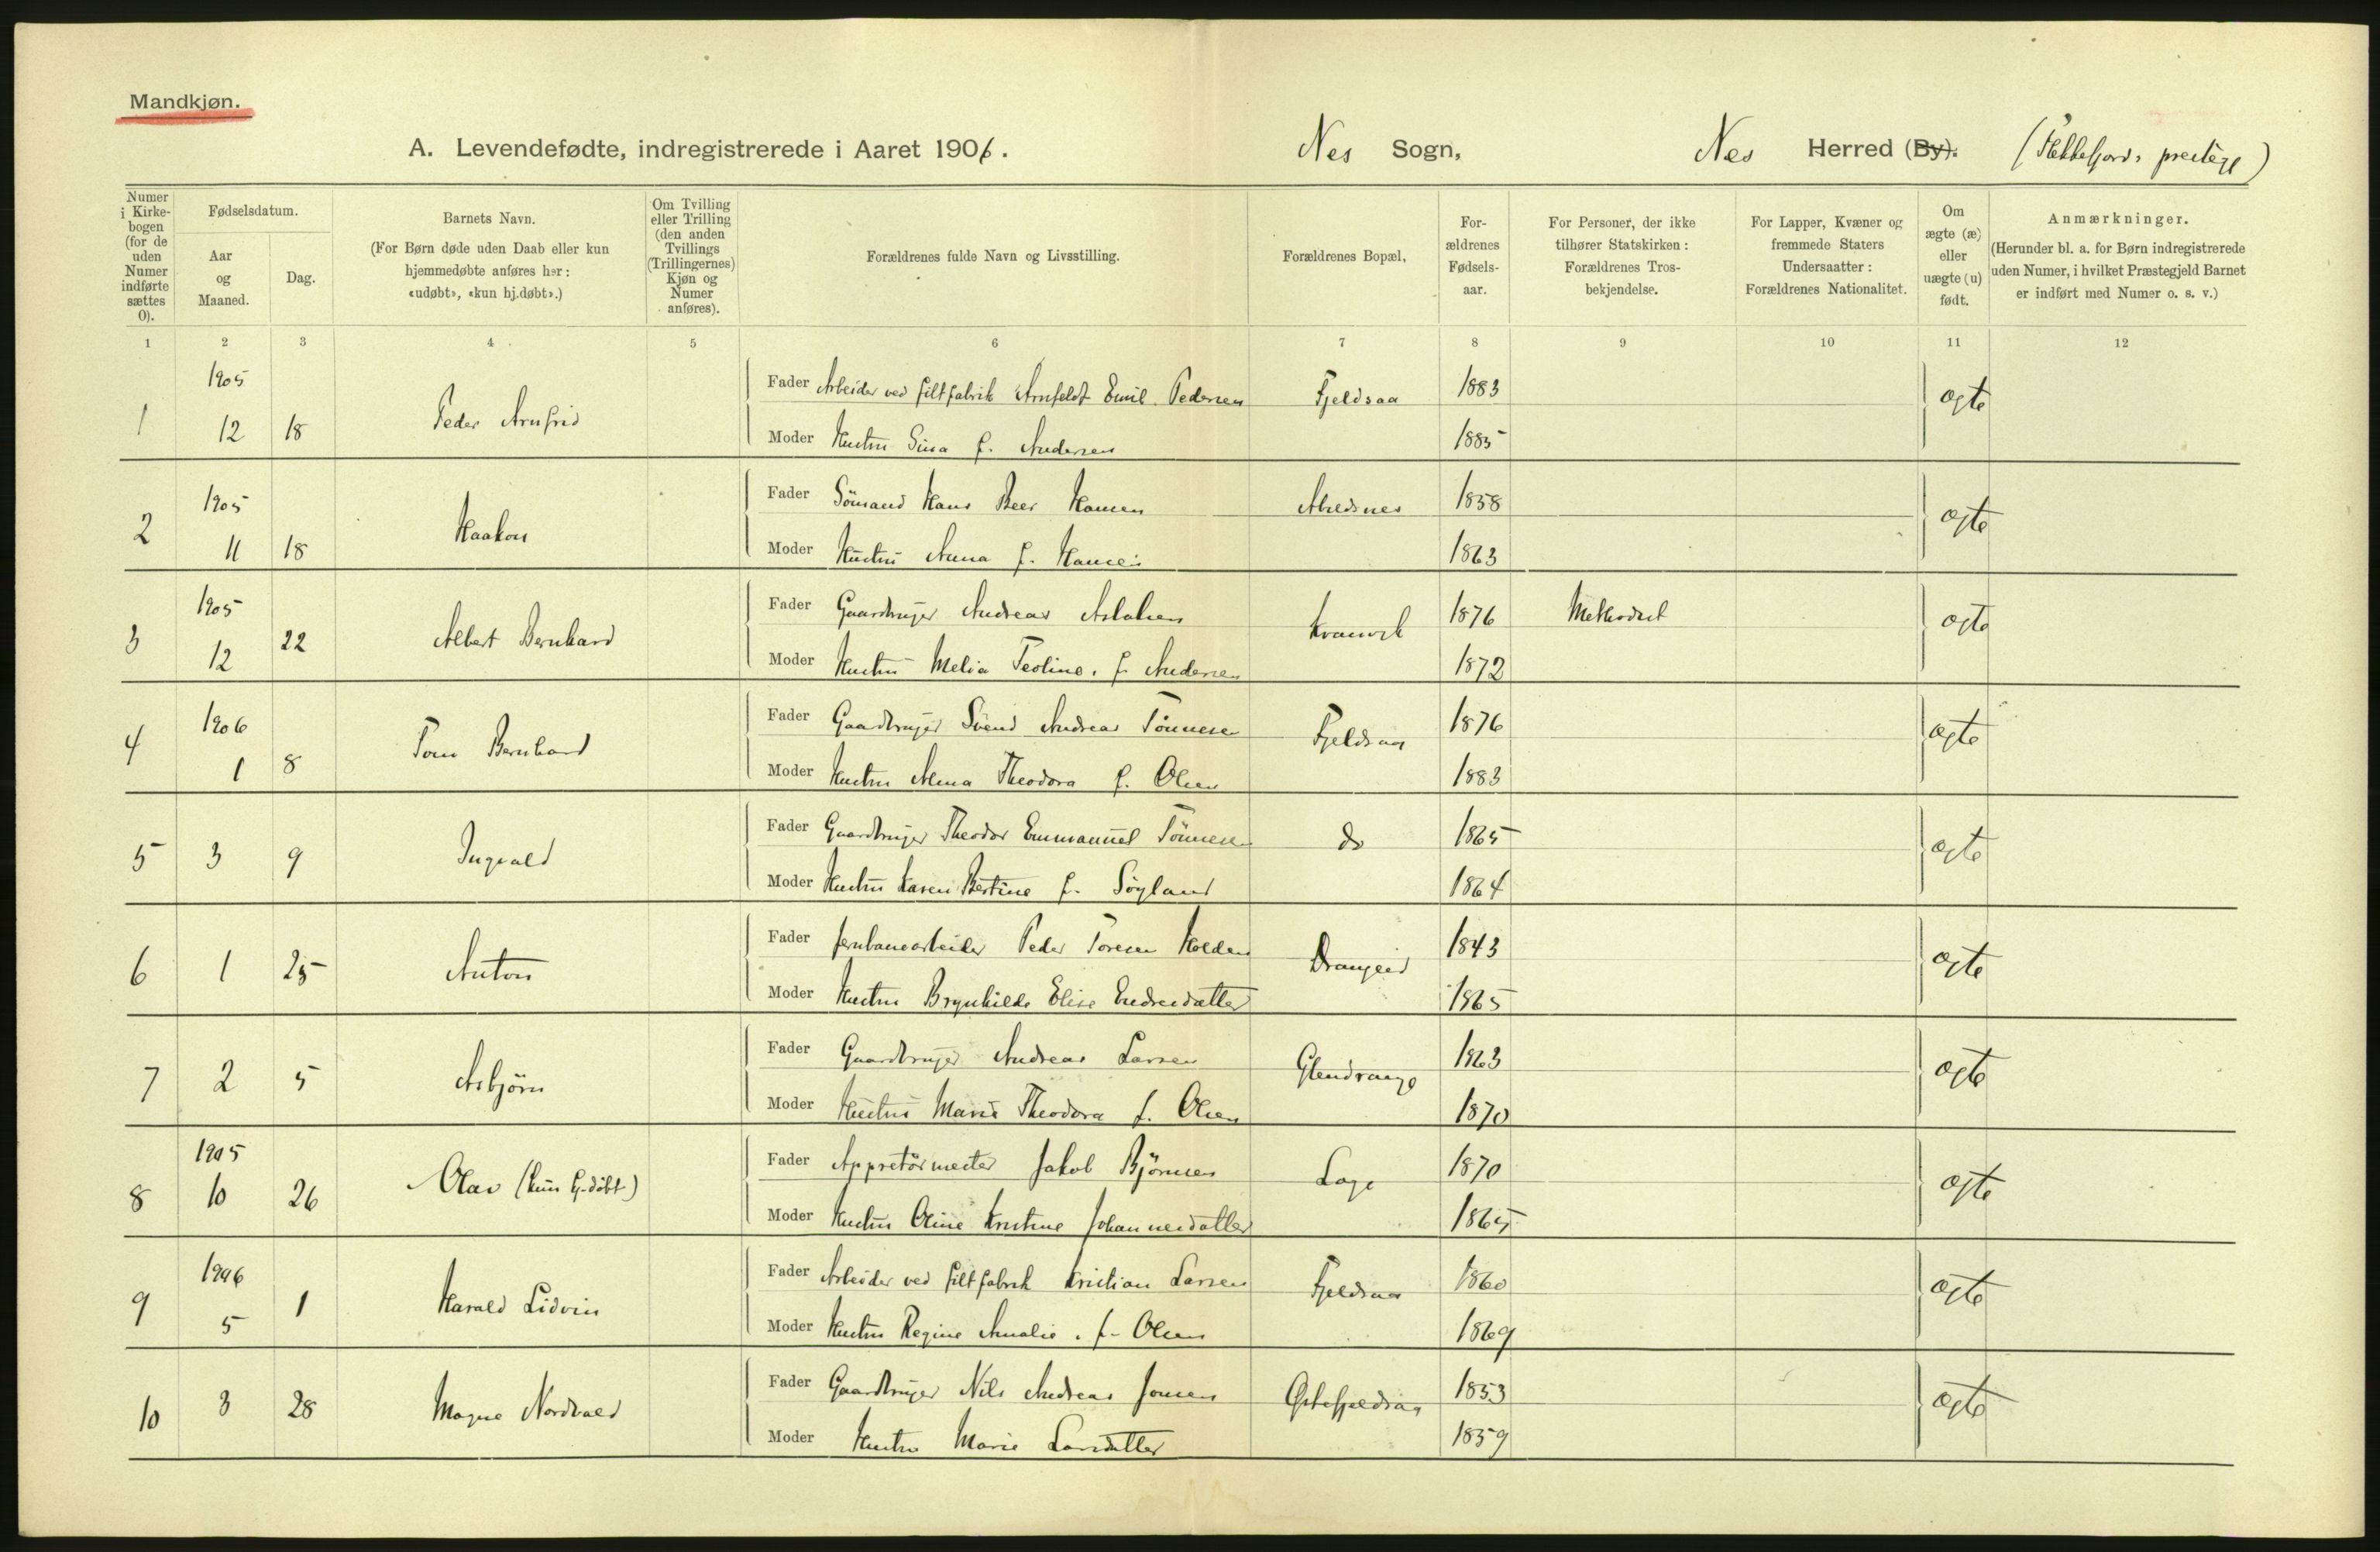 Mandkjøn.
A. Levendefødte, indregistrerede i Aaret 1906. Nes Sogn, Nes Herred (By). (Flekkefjords prestegj)
Numer i Kirkebogen (for de uden Numer indførte sættes 0).
Fødselsdatum.
Aar og Maaned.
Dag.
Barnets Navn.
(For Børn døde uden Daab eller kun hjemmedøbte anføres her: «udøbt», «kun hj.døbt».)
Om Tvilling eller Trilling (den anden Tvillings (Trillingernes) Kjøn og Numer anføres).
Forældrenes fulde Navn og Livsstilling.
Forældrenes Bopæl,
Forældrenes Fødselsaar.
For Personer, der ikke tilhører Statskirken: Forældrenes Trosbekjendelse.
For Lapper, Kvæner og fremmede Staters Undersaatter: Forældrenes Nationalitet.
Om ægte (æ) eller uægte (u) født.
Anmærkninger.
(Herunder bl. a. for Børn indregistrerede uden Numer, i hvilket Præstegjeld Barnet er indført med Numer o. s. v.)
1 2 3 4 5 6 7 8 9 10 11 12
1 1905 12 18 Peder Arnfrid Fader Arbeider ved filtfabrik Arnfeldt Emil Pedersen Fjeldsaa 1883 ægte
Moder Hustru Sina f. Andersen 1885
2 1905 11 18 Haakon Fader Sömand Hans Beer Hansen Abelsnes 1858 ægte
Moder Hustru Anna f. Hansen 1863
3 1905 12 22 Albert Bernhard Fader Gaardbruger Andreas Aslaksen Kvanvik 1876 Methodist ægte
Moder Hustru Melia Teoline, f. Andersen 1872
4 1906 1 8 Tom Bernhard Fader Gaardbruger Svend Andreas Tönnesen Fjeldsaa 1876 ægte
Moder Hustru Alma Theodora f. Olsen 1883
5 3 9 Ingvald Fader Gaardbruger Theodor Emmanuel Tönnesen do 1865 ægte
Moder Hustru Karen Bertine f. Söyland 1864
6 1 25 Anton Fader Jernbanearbeider Peder Toresen Holden Drangeid 1843 ægte
Moder Hustru Brynhilde Elise Endresdatter 1865
7 2 5 Asbjörn Fader Gaardbruger Andreas Larsen Glendrange 1863 ægte
Moder Hustru Marie Theodora f. Olsen 1870
8 1905 10 26 Olav (kun hj.döbt) Fader Appretörmester Jakob Björnsen Loge 1870 ægte
Moder Hustru Oline Kristine Johannesdatter 1865
9 1906 5 1 Harald Lidvin Fader Arbeider ved filtfabrik Kristian Larsen Fjeldsaa 1860 ægte
Moder Hustru Regine Amalie, f. Olsen 1869
10 3 28 Magne Nordvald Fader Gaardbruger Nils Andreas Jonsen 1853 ægte
Moder Hustru Marie Larsdatter 1859